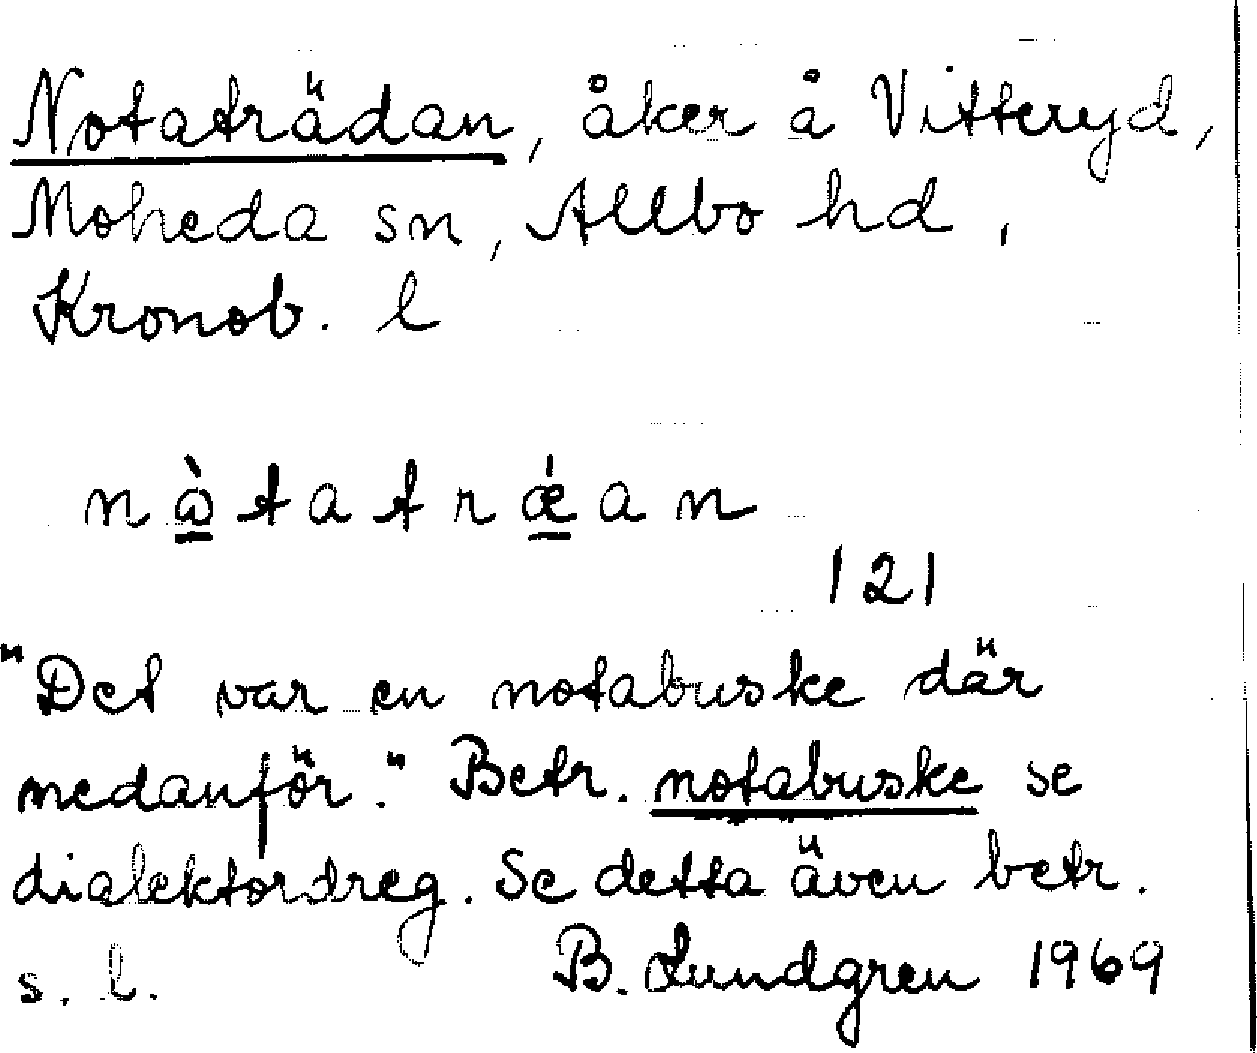 Notaträdan, åker å Vitteryd,
Moheda sn, Allbo hd,
Kronob. l
nò̲tatrǽ̲an
121
"Det var en notabuske där
nedanför." Betr. notabuske se
dialektordreg. Se detta även betr.
s. l. B. Lundgren 1969